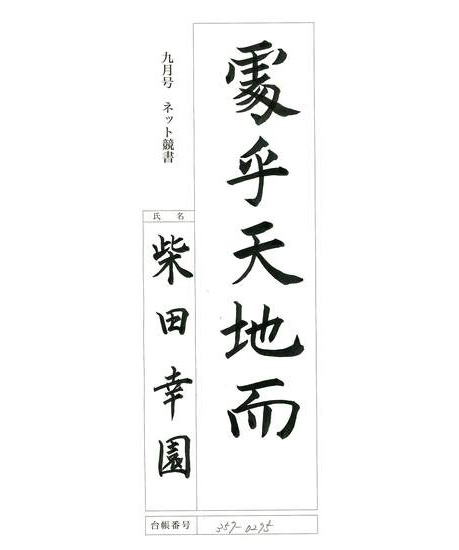 處乎天地而
九月号 ネット競書
氏名
柴田幸園
台帳番号 357-0275